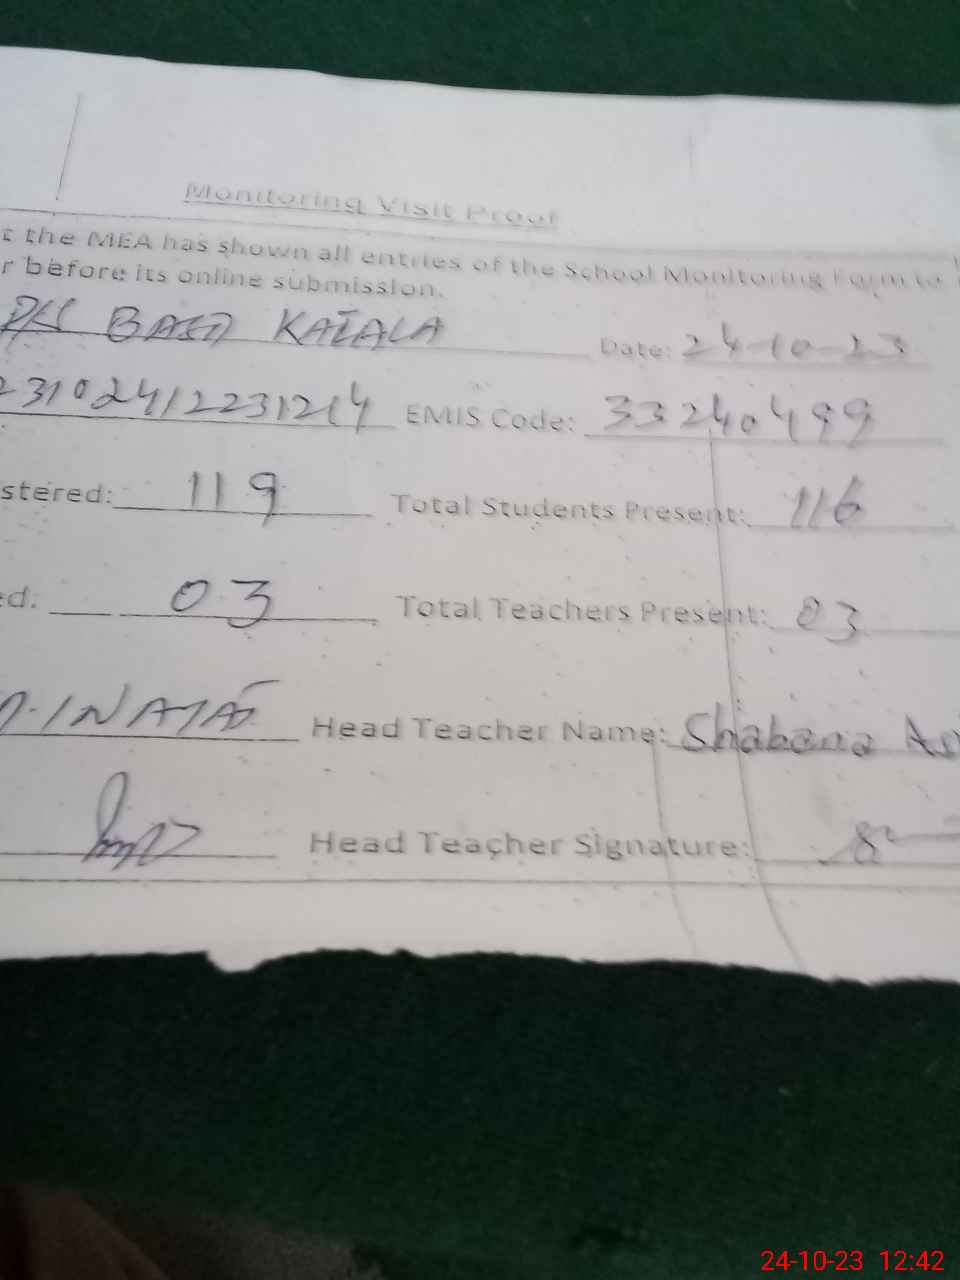 Monitoring Visit Proof
t the MEA has shown all entries of the School Monitoring Form to
r before its online submission.
BASTI KATALA Date: 24-10-23
23102412231214 EMIS Code: 33240499
stered: 119 Total Students Present: 116
ed: 03 Total Teachers Present: 03
Head Teacher Name: Shabana
Head Teacher Signature:
24-10-23 12:42